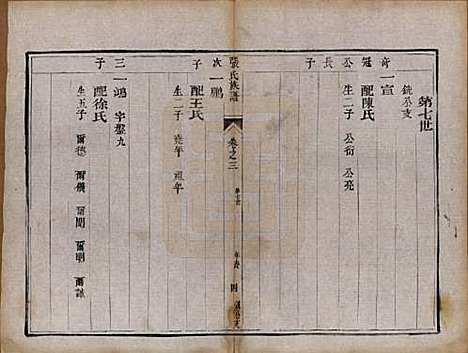 第七世
銑公支
奇一宣
配陳氏
冠公
生二子 公衡 公亮
長子
張氏族譜 卷之三
四
次一鵬
子
配王氏
生二子 堯年 祖年
三一鴻 字盤九
子
配徐氏
生五子 爾德 爾儀 爾聞 爾明 爾諴